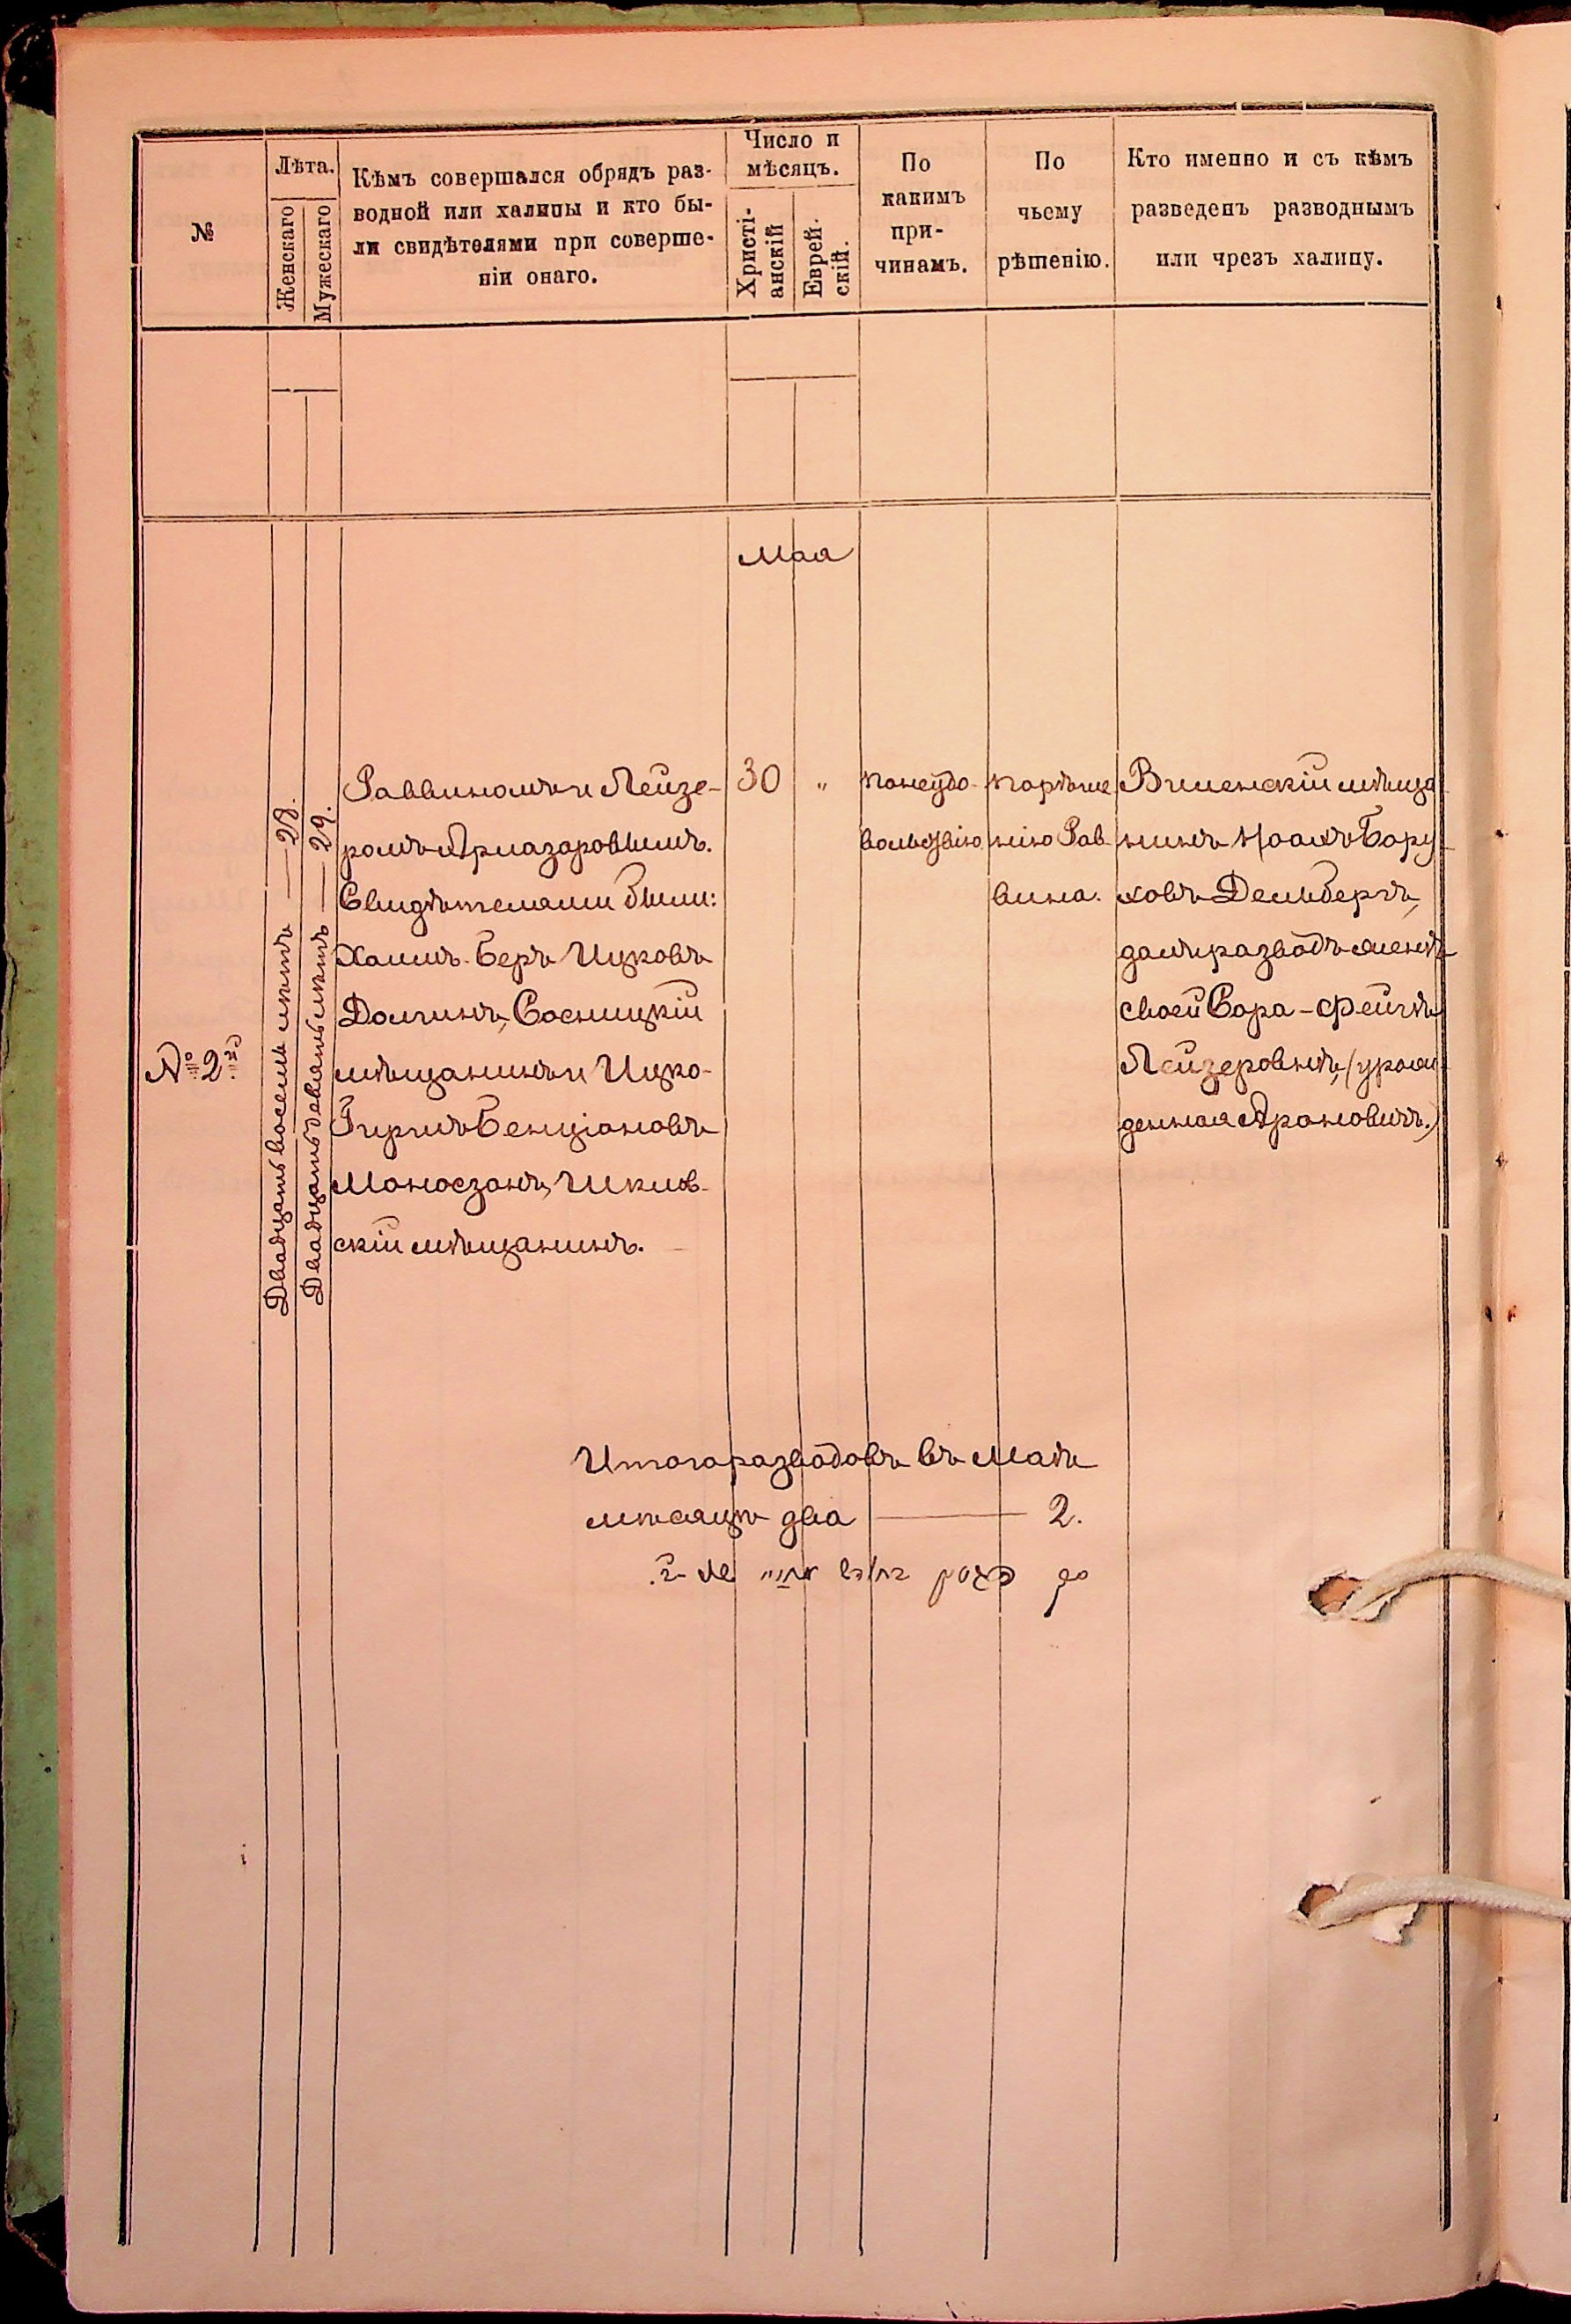 №
Лѣта.
Женскаго
Мужескаго
Кѣмъ совершался обрядъ раз-
водной или халицы и кто бы-
ли свидѣтелями при соверше-
ніи онаго.
Число и
мѣсяцъ.
Христі-
анскій
Еврей-
скій.
По
какимъ
при-
чинамъ.
По
чьему
рѣшенію.
Кто именно и съ кѣмъ
разведенъ разводнымъ
или чрезъ халицу.
Мая
№ 2й
Двадцать восемь лѣтъ — 28.
Двадцать девять лѣтъ — 29.
Раввиномъ Лейзе-
ромъ
Свидѣтелями были:
Хаимъ-Беръ Ицковъ
Долгинъ, Сосницкій
мѣщанинъ и Ицко-
Гиршъ Бенціоновъ
Моносзонъ, Шклов-
скій мѣщанинъ.
30
"
по неудо-
вольствію
по рѣше
нію Рав-
вина.
Виленскій мѣща
нинъ Ноахъ Бару-
ховъ Дельбергъ,
далъ разводъ женѣ
своей Сора-Фейгѣ
Лейзеровнѣ, (урож-
денная Ароновичъ.)
Итого разводовъ въ Маѣ
мѣсяцѣ два — 2.